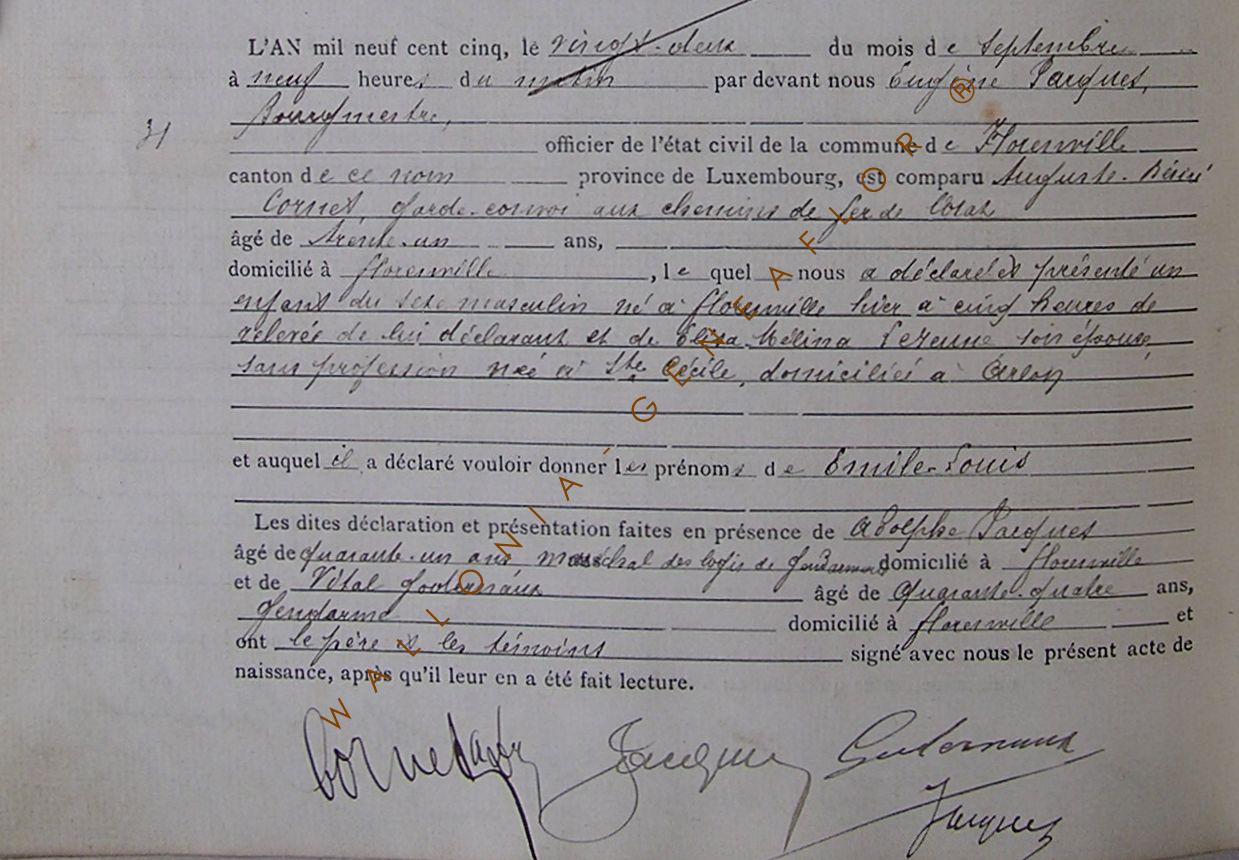 L'AN mil neuf cent cinq, le vingt-deux du mois de Septembre
à neuf heures du matin par devant nous Eugène Jacques,
Bourgmestre,
31 officier de l'état civil de la commune de Florenville
canton de ce nom province de Luxembourg, est comparu Auguste-Désiré
Cornet, garde-convoi aux chemins de fer de l'état
âgé de trente-un ans,
domicilié à florenville, lequel nous a déclaré et présenté un
enfant du sexe masculin né à florenville hier à cinq heures de
relevée de lui déclarant et de Eliza Mélina Lejeune son épouse,
sans profession née à Ste Cécile, domiciliée à Arlon
et auquel il a déclaré vouloir donner les prénoms de Emile-Louis
Les dites déclaration et présentation faites en présence de Adolphe Jacques
âgé de quarante-un ans maréchal des logis de gendarmerie domicilié à florenville
et de Vital âgé de quarante-quatre ans,
gendarme domicilié à florenville et
ont le père et les témoins signé avec nous le présent acte de
naissance, après qu'il leur en a été fait lecture.
Cornet Jacques
Jacques
WALLONIA GENEAFLOR ®